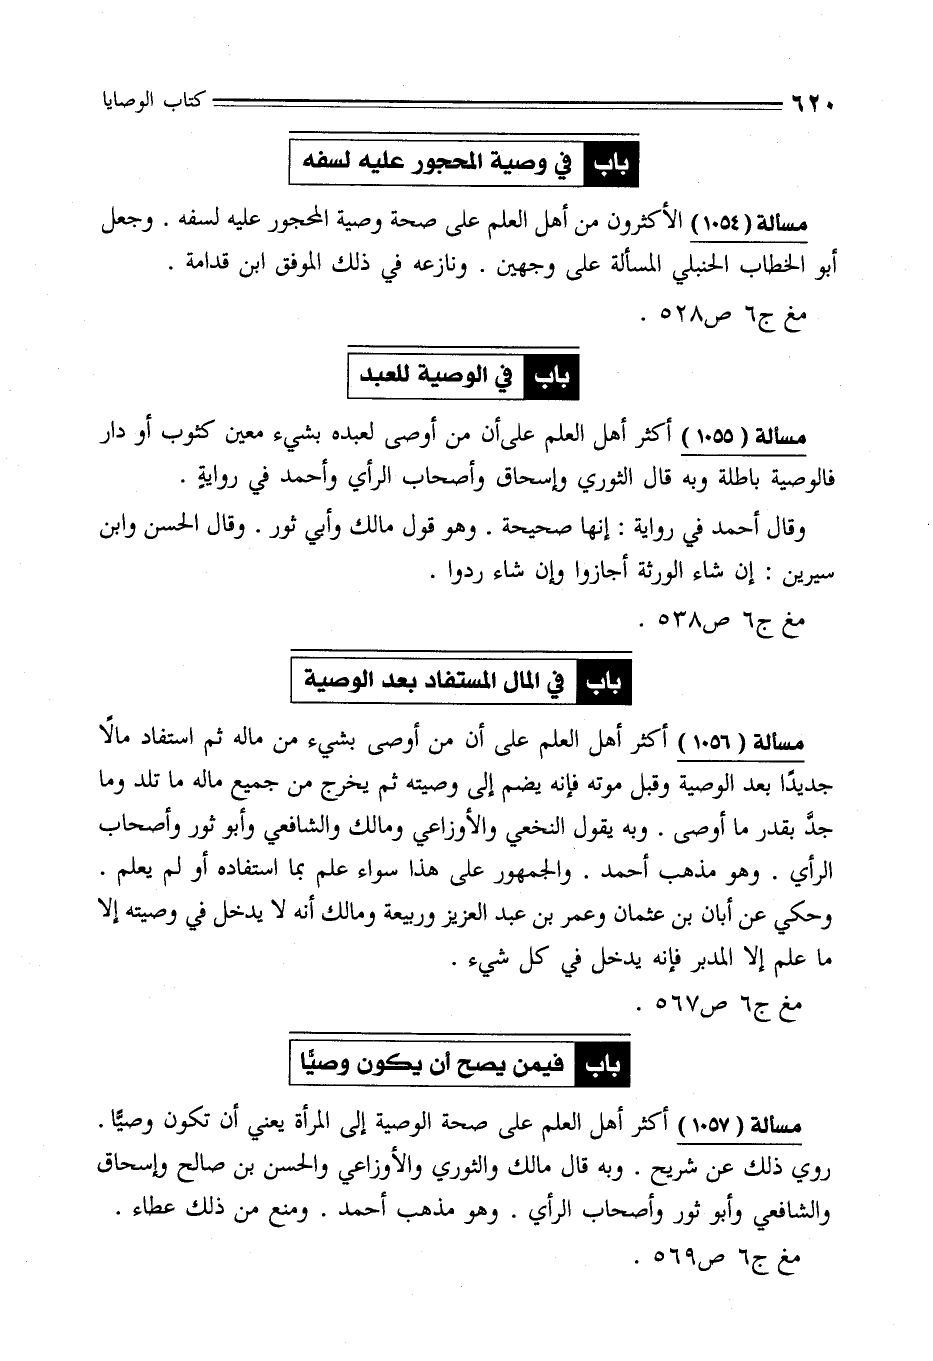 ٦٢٠ كتاب الوصايا
باب في وصية المحجور عليه لسفه
مسألة (١٠٥٤) الأكثرون من أهل العلم على صحة وصية المحجور عليه لسفه . وجعل
أبو الخطاب الحنبلي المسألة على وجهين . ونازعه في ذلك الموفق ابن قدامة .
مغ ج٦ ص٥٢٨ .
باب في الوصية للعبد
مسألة (١٠٥٥) أكثر أهل العلم على أن من أوصى لعبده بشيء معين كثوب أو دار
فالوصية باطلة وبه قال الثوري وإسحاق وأصحاب الرأي وأحمد في روايةٍ .
وقال أحمد في رواية : إنها صحيحة . وهو قول مالك وأبي ثور . وقال الحسن وابن
سيرين : إن شاء الورثة أجازوا وإن شاء ردوا .
مغ ج٦ ص٥٣٨ .
باب في المال المستفاد بعد الوصية
مسألة (١٠٥٦) أكثر أهل العلم على أن من أوصى بشيء من ماله ثم استفاد مالًا
جديدًا بعد الوصية وقبل موته فإنه يضم إلى وصيته ثم يخرج من جميع ماله ما تلد وما
جدَّ بقدر ما أوصى . وبه يقول النخعي والأوزاعي ومالك والشافعي وأبو ثور وأصحاب
الرأي . وهو مذهب أحمد . والجمهور على هذا سواء علم بما استفاده أو لم يعلم .
وحكي عن أبان بن عثمان وعمر بن عبد العزيز وربيعة ومالك أنه لا يدخل في وصيته إلا
ما علم إلا المدبر فإنه يدخل في كل شيء .
مغ ج٦ ص٥٦٧ .
باب فيمن يصح أن يكون وصيًّا
مسألة (١٠٥٧) أكثر أهل العلم على صحة الوصية إلى المرأة يعني أن تكون وصيًّا .
روي ذلك عن شريح . وبه قال مالك والثوري والأوزاعي والحسن بن صالح وإسحاق
والشافعي وأبو ثور وأصحاب الرأي . وهو مذهب أحمد . ومنع من ذلك عطاء .
مغ ج٦ ص٥٦٩ .